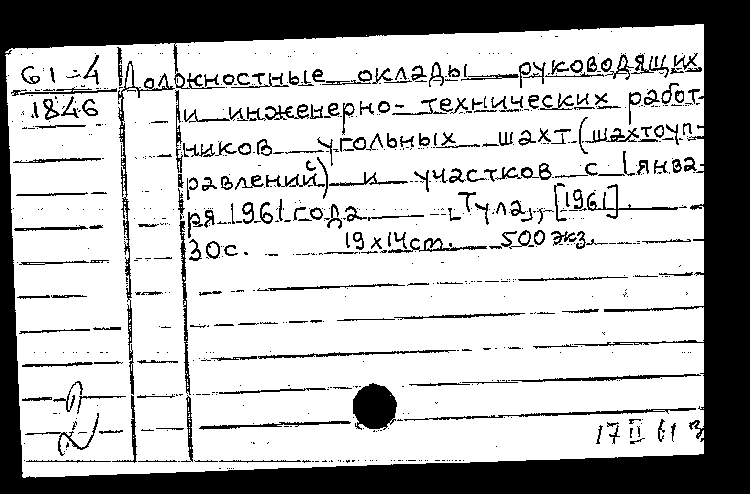 61-4 Должностные оклады руководящих
1846 и инженерно-технических работ-
ников угольных шахт (шахтоуп-
равлений) и участков с 1 янва-
ря 1961 года. Тула, [1961].
30с. 19 x 14 cm. 500 экз.
2
17 II 61 з